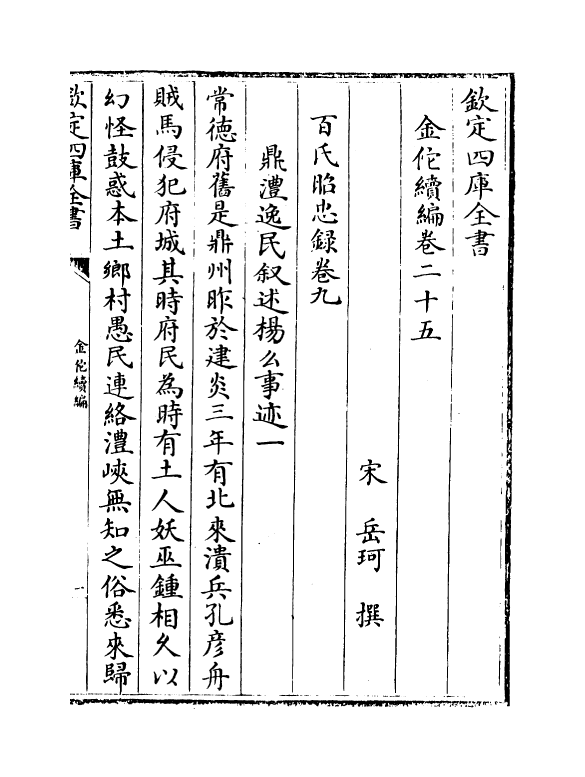 欽定四庫全書
金佗續編卷二十五
宋　岳珂　撰
百氏昭忠錄卷九
鼎澧逸民叙述楊么事迹一
常徳府舊是鼎州昨於建炎三年有北來潰兵孔彦舟
賊馬侵犯府城其時府民為時有土人妖巫鍾相久以
幻怪鼓惑本土鄉村愚民連絡澧峽無知之俗悉來歸
欽定四庫全書
金佗續編
一